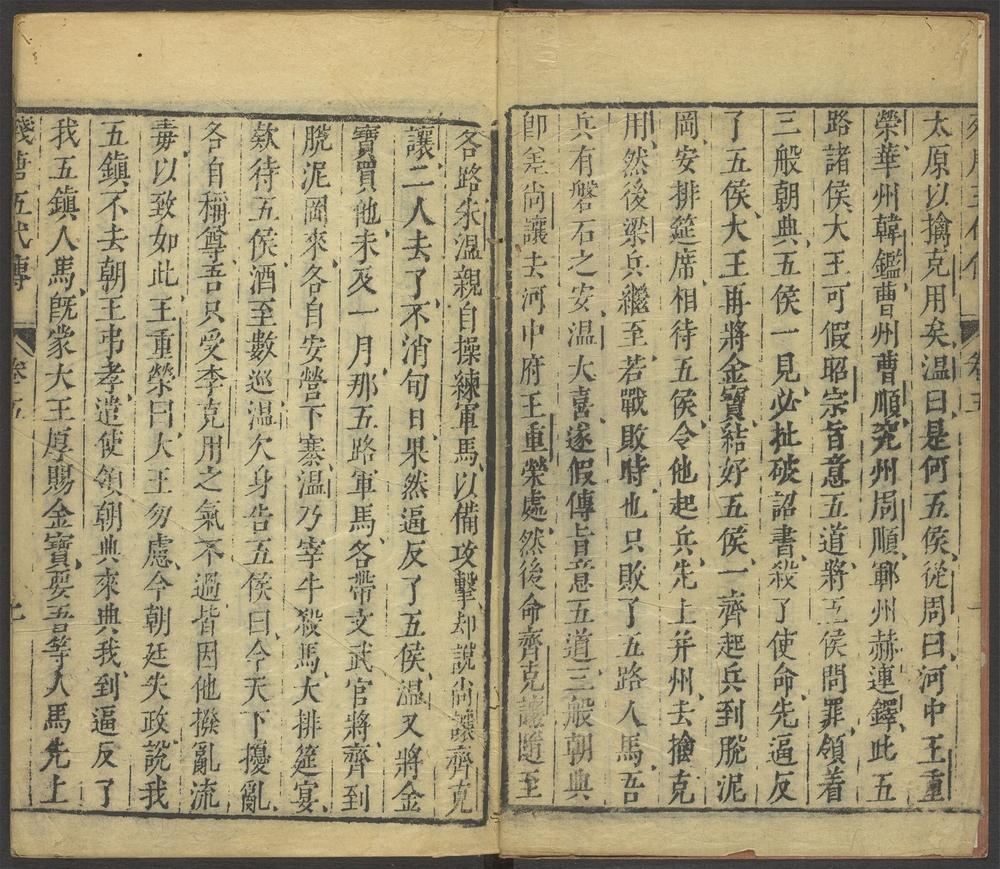 太原以擒克用矣溫曰是何五侯從周曰河中王重
榮華州韓鑑曹州曹順兖州周順鄆州赫連鐸此五
路諸侯大王可假昭宗旨意五道將五侯問罪領着
三般朝典五侯一見必扯破詔書殺了使命先逼反
了五侯大王再將金寶結好五侯一齊起兵到脫泥
岡安排筵席相待五侯令他起兵先上并州去擒克
用然後梁兵繼至若戰敗時也只敗了五路人馬吾
兵有磐石之安溫大喜遂假傳旨意五道三般朝典
卽差尙讓去河中府王重榮處然後命齊克讓隨至
各路朱溫親自操練軍馬以備攻擊却說尙讓齊克
讓二人去了不消旬日果然逼反了五侯溫又將金
寶買他未及一月那五路軍馬各帶文武官將齊到
脫泥岡來各自安營下寨溫乃宰牛殺馬大排筵宴
欵待五侯酒至數巡溫欠身告五侯曰今天下擾亂
各自稱尊吾只受李克用之氣不過皆因他撥亂流
毒以致如此王重榮曰大王勿慮今朝廷失政說我
五鎮不去朝王弔孝遣使領朝典來典我到逼反了
我五鎮人馬旣蒙大王厚賜金寶要吾等人馬先上
殘唐五代傳 卷五